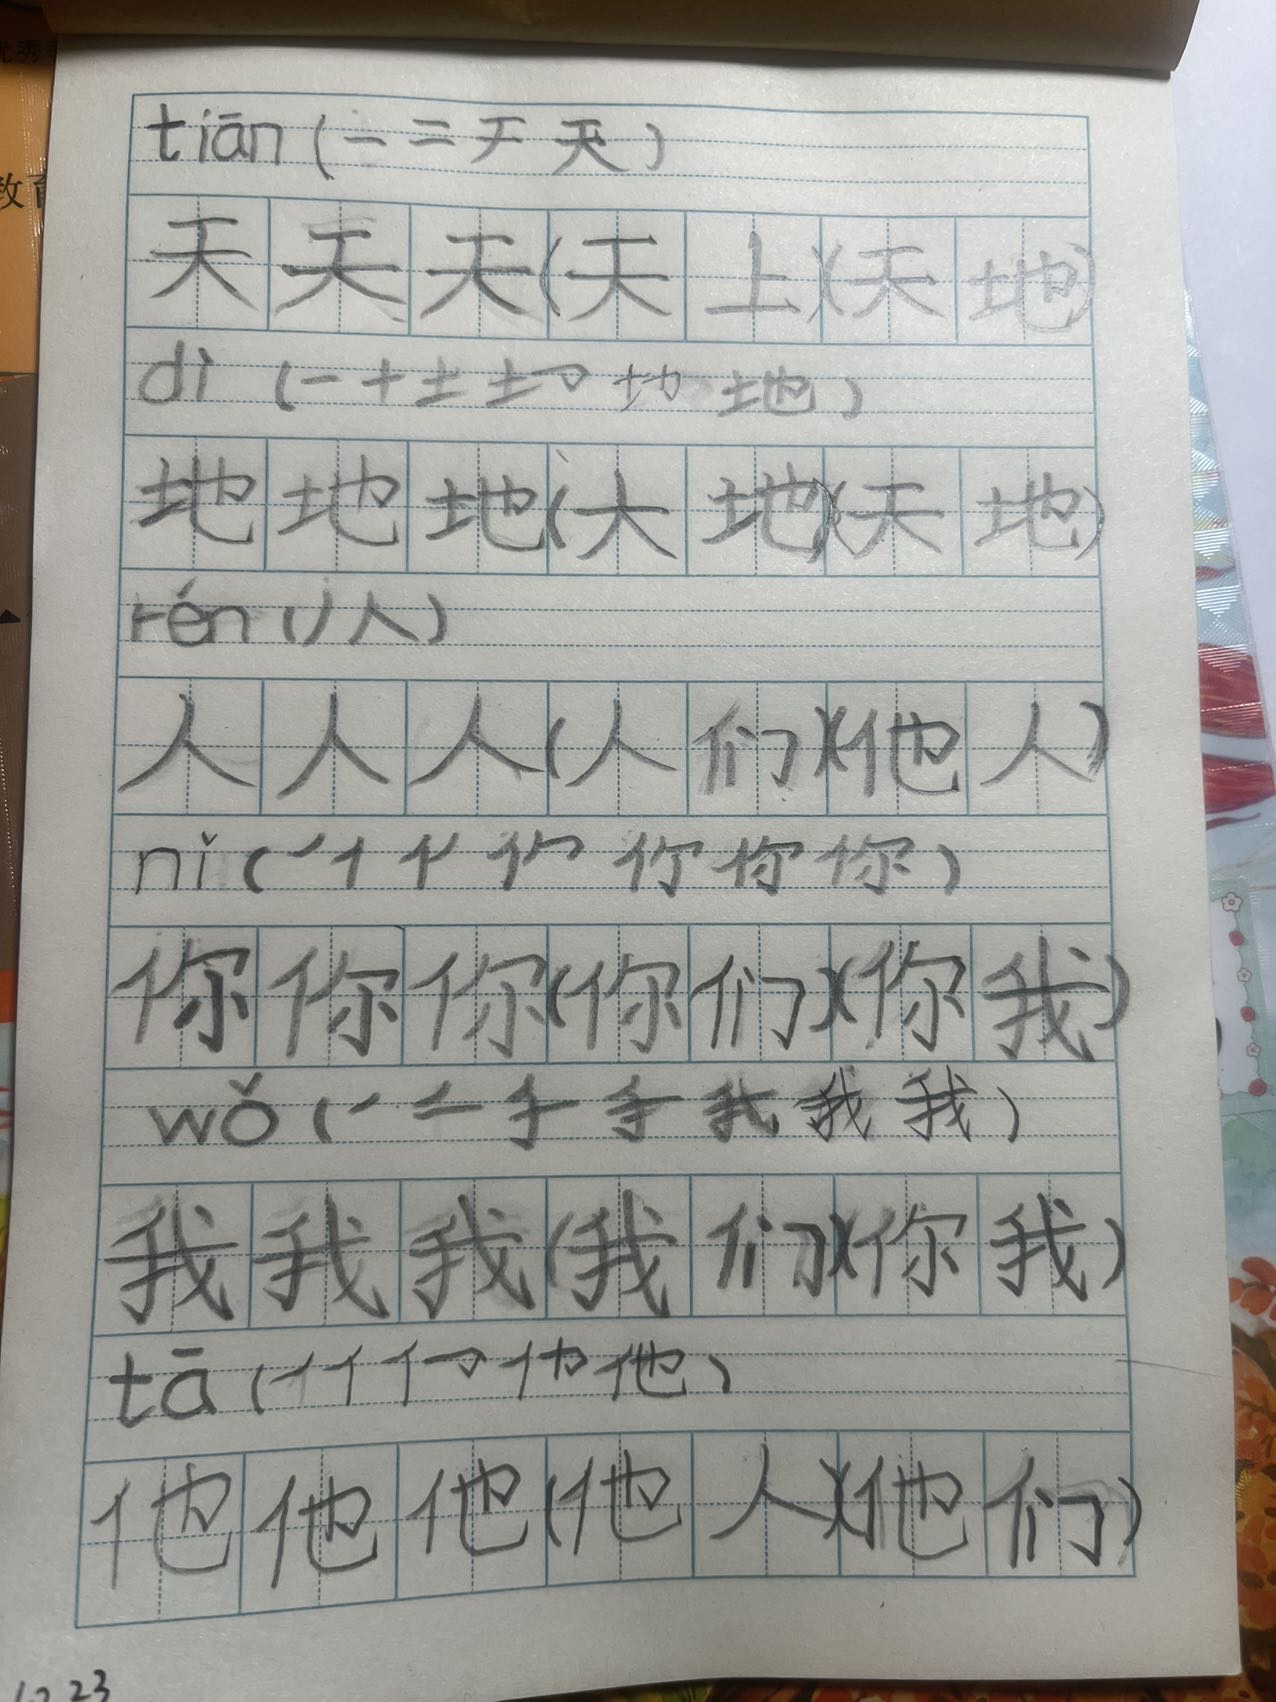 优秀
教育
tiān (一 二 于 天)
天 天 天 (天 上)(天 地)
dì (一 十 土 圤 地)
地 地 地 (大 地)(天 地)
rén (丿 人)
人 人 人 (人 们)(他 人)
nǐ (丿 亻 你 你 你)
你 你 你 (你 们)(你 我)
wǒ (丿 二 手 手 我 我 我)
我 我 我 (我 们)(你 我)
tā (丿 亻 他)
他 他 他 (他 人)(他 们)
23